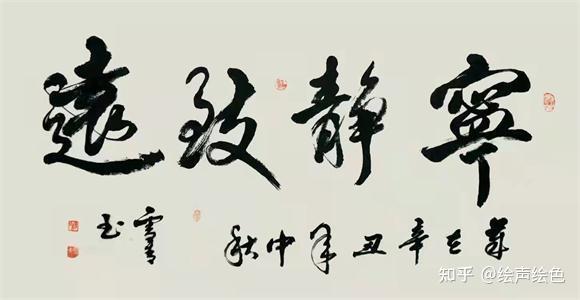 寧静致遠
歲在辛丑年中秋
知乎 @绘声绘色